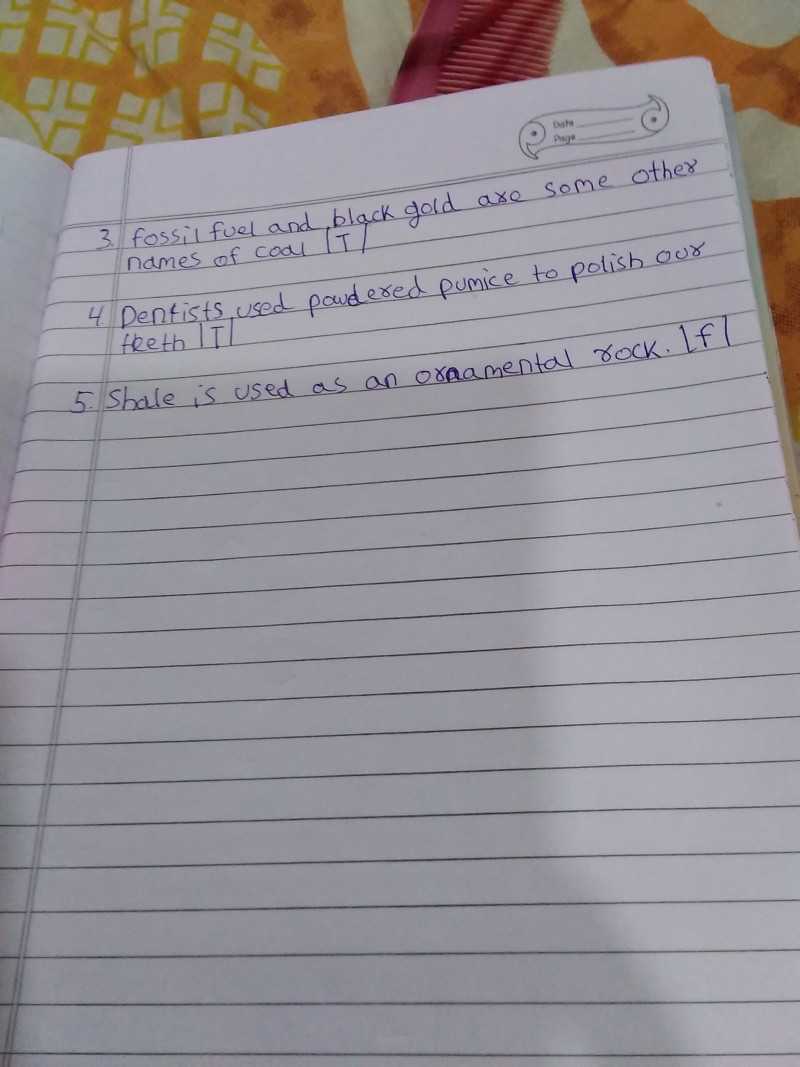 Date
Page
3. fossil fuel and black gold are some other
names of coal |T|
4. Dentists used powdered pumice to polish our
teeth |T|
5. Shale is used as an ornamental rock. |f|